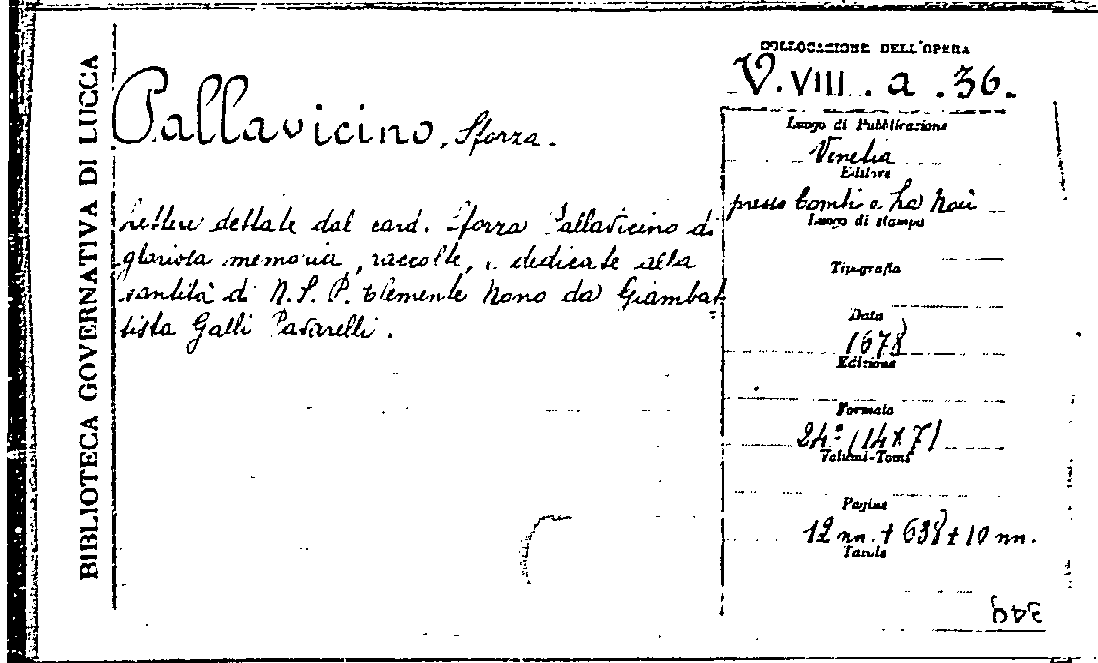 BIBLIOTECA GOVERNATIVA DI LUCCA
COLLOCAZIONE DELL'OPERA
V. VIII. a. 36.
Pallavicino, Sforza.
Lettere dettate dal card. Sforza Pallavicino di
gloriosa memoria, raccolte, e dedicate alla
santità di N. S. P. Clemente Nono da Giambat-
tista Galli Pavarelli.
Luogo di Pubblicazione
Venetia
Editore
presso Combi e La Noù
Luogo di stampa
Tipografia
Data
1678
Edizione
Formato
24° (14x7)
Volumi-Tomi
Pagine
12 nn. + 638 + 10 nn.
Tavole